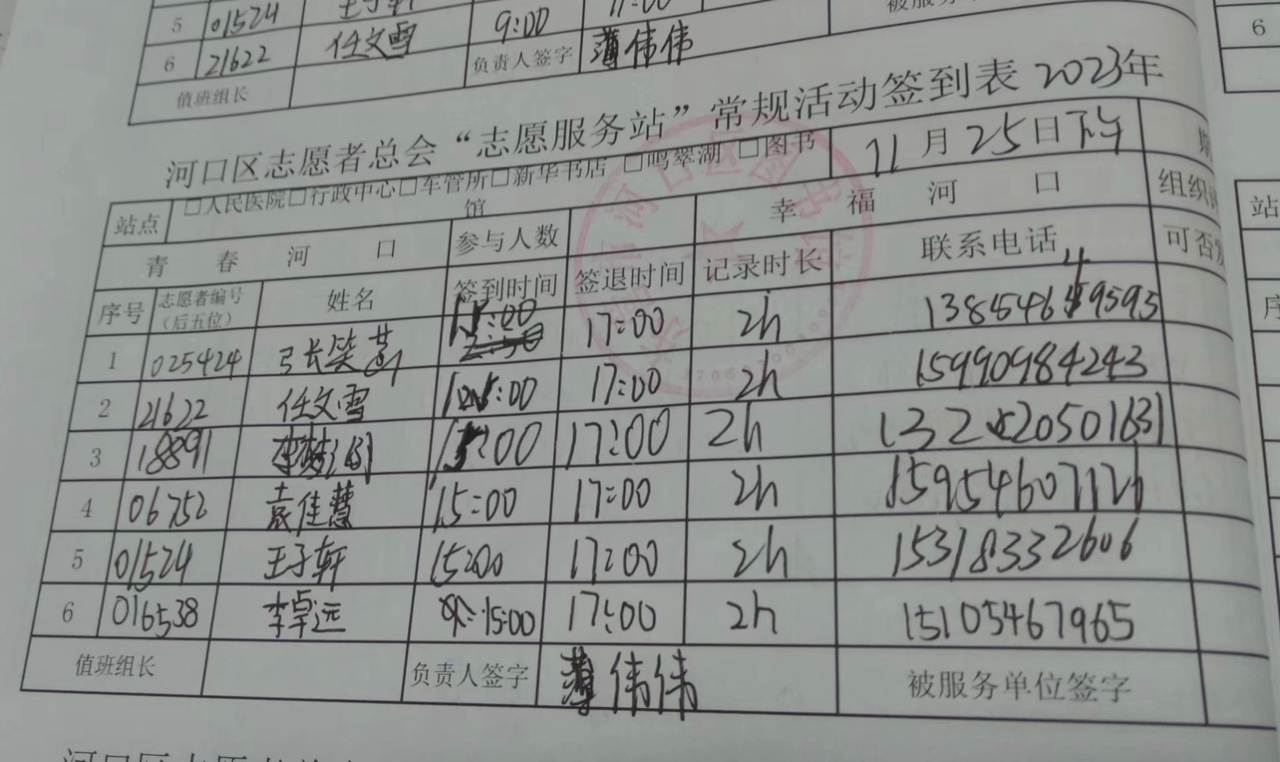 5 01524 王子轩
6 21622 任文雪 9:00 负责人签字 薄伟伟
值班组长
河口区志愿者总会“志愿服务站”常规活动签到表 2023年
站点 □人民医院□行政中心□车管所□新华书店 □鸣翠湖 □图书馆 11月25日下午
青春河口 参与人数 幸福河口 组织
序号 志愿者编号（后五位） 姓名 签到时间 签退时间 记录时长 联系电话 可否
1 025424 张笑茗 15:00 17:00 2h
2 21622 任文雪 15:00 17:00 2h 15990984243
3 18891 15:00 17:00 2h
4 06752 袁佳慧 15:00 17:00 2h
5 01524 王子轩 15:00 17:00 2h 15318332606
6 016538 李卓远 15:00 17:00 2h 15105467965
值班组长 负责人签字 薄伟伟 被服务单位签字
6
站